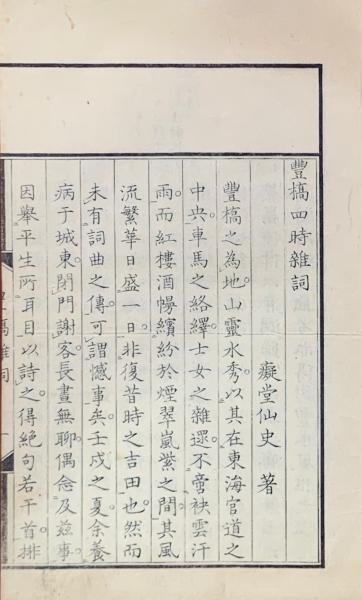 豐橋四時雜詞
癡堂仙史 著
豐橋之為地山靈水秀以其在東海官道之
中央車馬之絡繹士女之雜遝不啻袂雲汗
雨而紅樓酒幔繽紛於煙翠嵐紫之間其風
流繁華日盛一日非復昔時之吉田也然而
未有詞曲之傳可謂憾事矣壬戌之夏余養
病于城東閉門謝客長晝無聊偶念及茲事
因舉平生所耳目以詩之得絕句若干首排